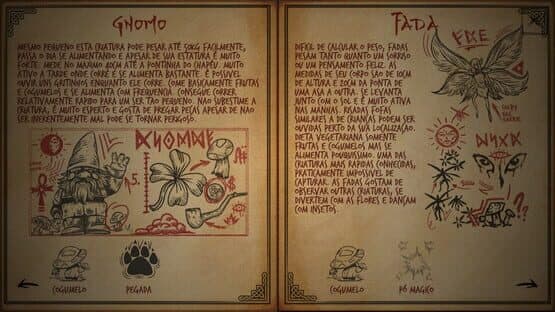 GNOMO
MESMO PEQUENO ESTA CRIATURA PODE PESAR ATÉ 50KG FACILMENTE,
PASSA O DIA SE ALIMENTANDO E APESAR DE SUA ESTATURA É MUITO
FORTE. MEDE NO MAXIMO 40CM ATÉ A PONTINHA DO CHAPÉU. MUITO
ATIVO A TARDE ONDE CORRE E SE ALIMENTA BASTANTE. É POSSIVEL
OUVIR UNS GRITINHOS ENQUANTO ELE CORRE. COME BASICAMENTE FRUTAS
E COGUMELOS E SE ALIMENTA COM FREQUENCIA. CONSEGUE CORRER
RELATIVAMENTE RAPIDO PARA UM SER TÃO PEQUENO. NÃO SUBESTIME A
CRIATURA, É MUITO ESPERTO E GOSTA DE PREGAR PEÇAS APESAR DE NÃO
SER INERENTEMENTE MAL PODE SE TORNAR PERIGOSO.
COGUMELO
PEGADA
FADA
DIFICIL DE CALCULAR O PESO, FADAS
PESAM TANTO QUANTO UM SORRISO
OU UM PENSAMENTO FELIZ. AS
MEDIDAS DE SEU CORPO SÃO DE 10CM
DE ALTURA E 20CM DA PONTA DE
UMA ASA A OUTRA. SE LEVANTA
JUNTO COM O SOL E É MUITO ATIVA
NAS MANHÃS. RISADAS FOFAS
SIMILARES A DE CRIANÇAS PODEM SER
OUVIDAS PERTO DA SUA LOCALIZAÇÃO.
DIETA VEGETARIANA SOMENTE
FRUTAS E COGUMELOS MAS SE
ALIMENTA POUQUISSIMO. UMA DAS
CRIATURAS MAIS RAPIDAS CONHECIDAS,
PRATICAMENTE IMPOSSIVEL DE
CAPTURAR. AS FADAS GOSTAM DE
OBSERVAR OUTRAS CRIATURAS, SE
DIVERTEM COM AS FLORES E DANÇAM
COM INSETOS.
COGUMELO
PÓ MAGICO